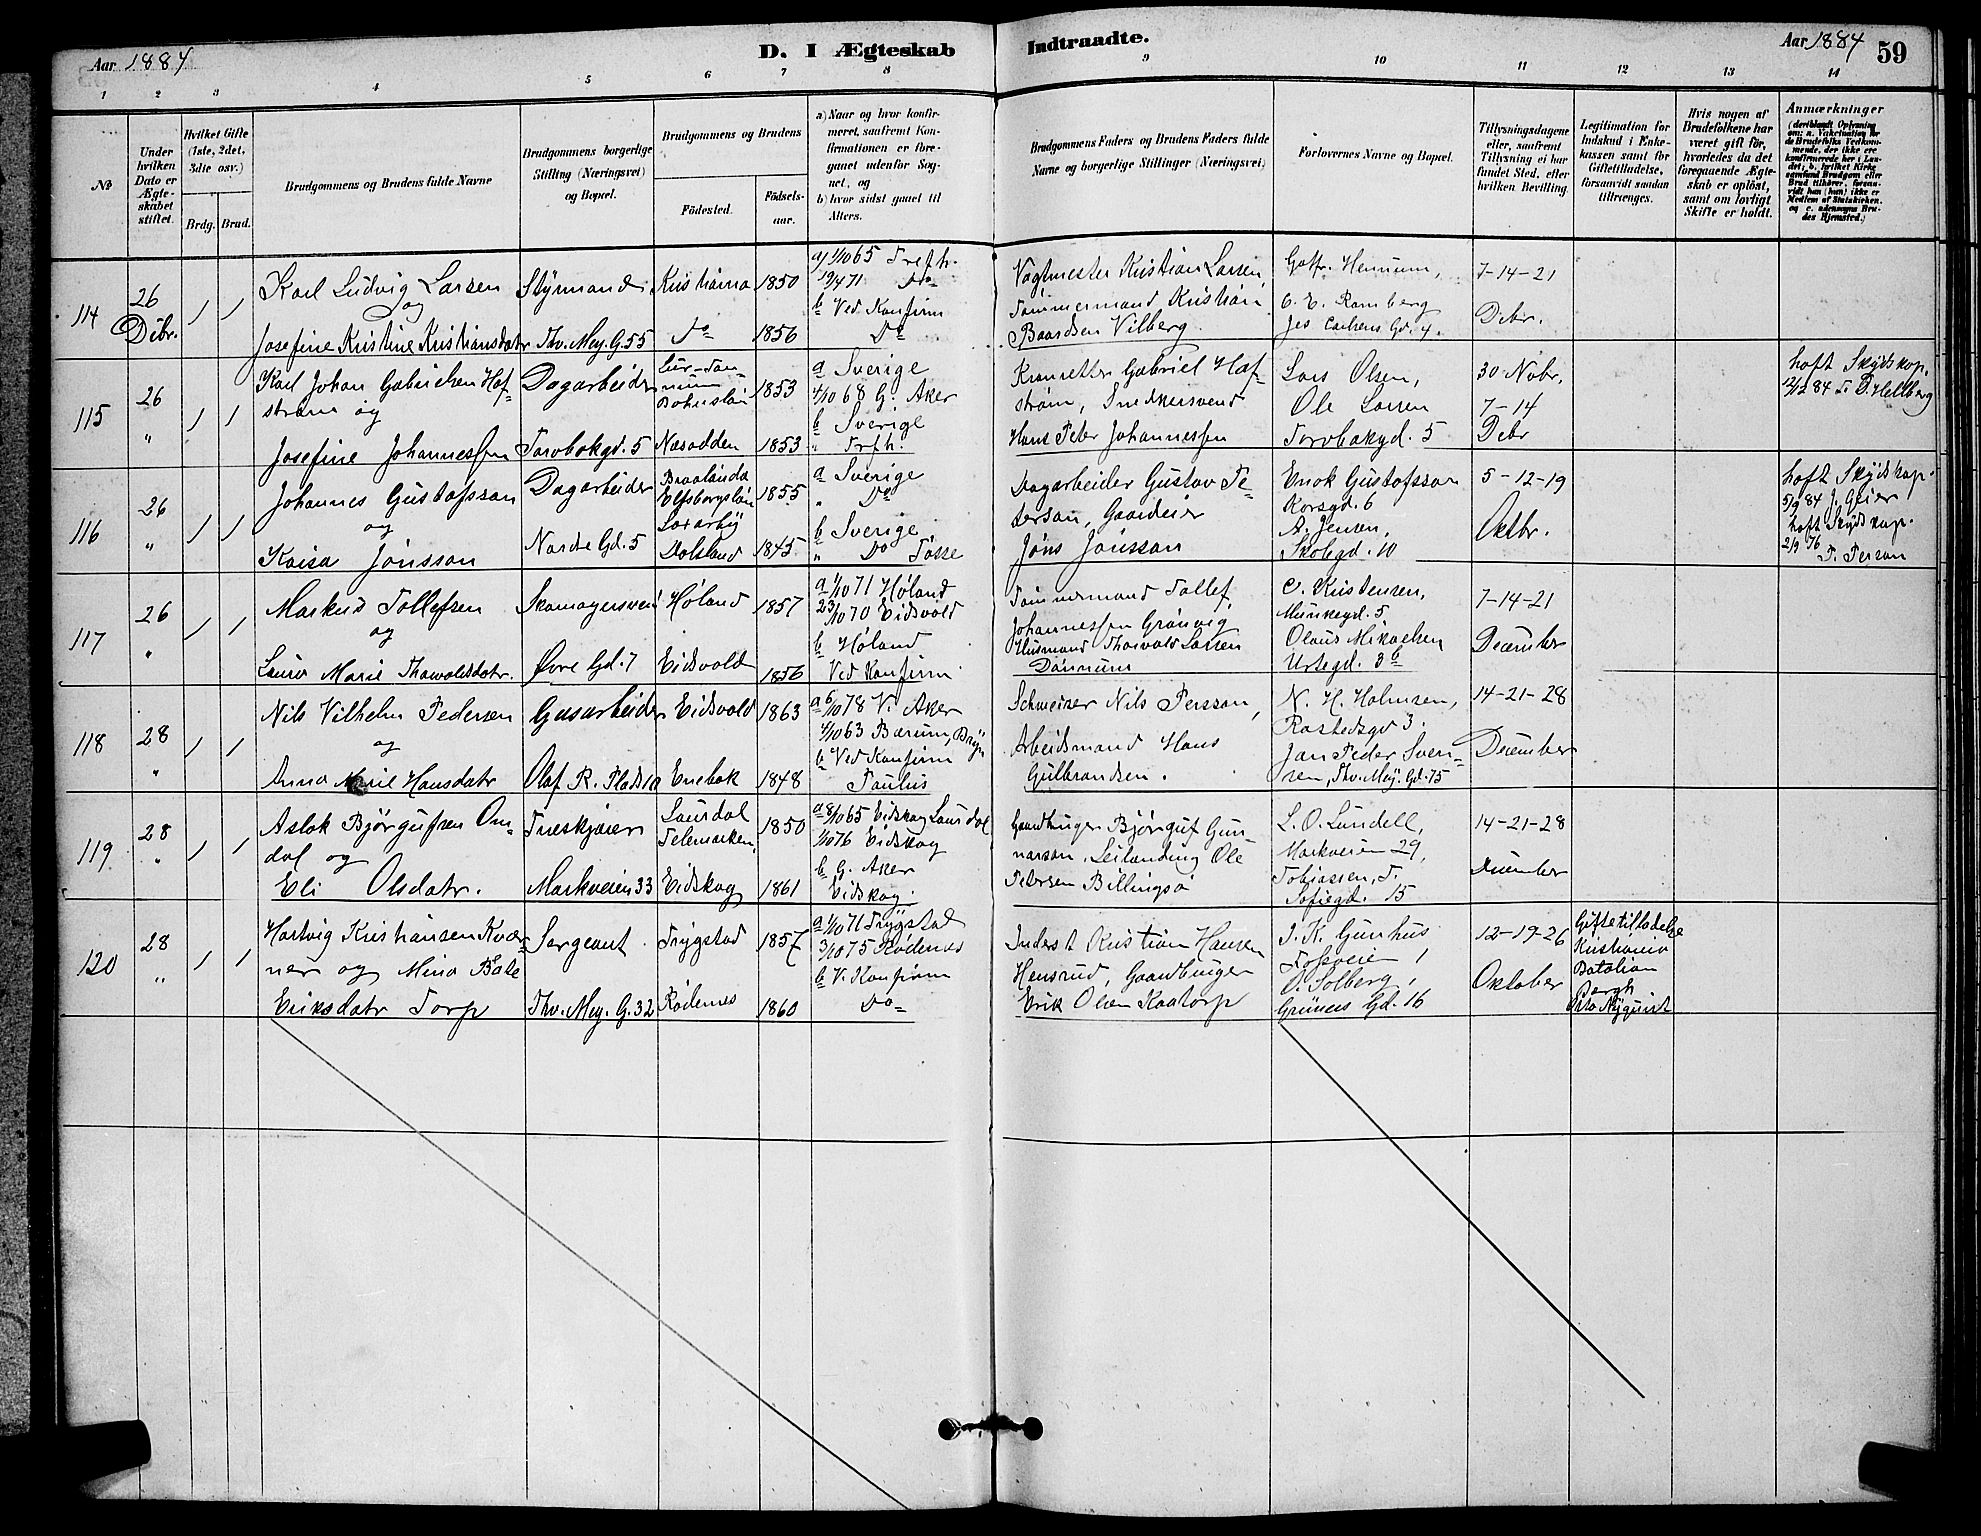 Aar 1884
D. I Ægteskab
Indtraadte.
Aar 1884
59
1 2 3 4 5 6 7 8 9 10 11 12 13 14
No
Under
hvilken
Dato er
Ægte-
skabet
stiftet.
Hvilket Gifte
(1ste, 2det,
3die osv.)
Brdg. Brud.
Brudgommens og Brudens fulde Navne
Brudgommens borgerlige
Stilling (Næringsvei)
og Bopæl.
Brudgommens og Brudens
Fødested.
Fødsels-
aar.
a) Naar og hvor konfir-
meret, saafremt Kon-
firmationen er fore-
gaaet udenfor Sog-
net, og
b) hvor sidst gaaet til
Alters.
Brudgommens Faders og Brudens Faders fulde
Navne og borgerlige Stillinger (Næringsvei)
Forlovernes Navne og Bopæl.
Tillysningsdagene
eller, saafremt
Tillysning ei har
fundet Sted, efter
hvilken Bevilling.
Legitimation for
Indskud i Enke-
kassen samt for
Giftetilladelse,
forsaavidt saadan
tiltrænges.
Hvis nogen af
Brudefolkene har
været gift før,
hvorledes da det
foregaaende Ægte-
skab er opløst,
samt om lovligt
Skifte er holdt.
Anmærkninger
(deriblandt Oplysning
om: a. Vakcination for
de Brudefolks Vedkom-
mende, der ikke ere
konfirmerede her i Lan-
det; b. hvilket Kirke-
samfund Brudgom eller
Brud tilhører, forsaa-
vidt han (hun) ikke er
Medlem af Statskirken,
og c. udensogns Bru-
des Hjemsted.)
114
26
Debr.
1 1
Karl Ludvig Larsen
og
Josefine Kristine Kristiansdatr
Styrmand
Thv. Mey. G. 55
Kristiania 1850
Do 1856
a 1/10 65 Trefh.
19/4 71 Do
b Ved Konfirm
Do
Vogtmester Kristian Larsen,
Tømmermand Kristian
Baardsen Vilberg
Gotfr. Hennum,
C. E. Ramberg
Jes Carlsens Gd. 4.
7-14-21
Debr.
115
26
"
1 1
Karl Johan Gabrielsen Haf-
strøm og
Josefine Johannessen
Dagarbeider
Torvbakgd. 5
Bohuslän 1853
Næsodden 1853
a Sverige
4/10 68 G. Aker
b Sverige
" Trfh.
Gabriel Haf-
strøm, Snedkersvend
Hans Peter Johannessen
Lars Olsen,
Ole Larsen
Torvbakgd. 5
30 Nobr.
7-14
Debr
haft Skydskop.
12/12 84 D. Hellberg
116
26
"
1 1
Johannes Gustafsson
og
Kaisa Jönsson
Dagarbeider
Nordre Gd. 5
Elfsborgslän 1855
Dalsland 1845
a Sverige
" Do
b Sverige
" Do Tösse
Dagarbeider Gustav Pe-
dersan, Gaardeier
Jöns Jönsson
Enok Gustofsson
Korsgd. 6
A. Jensen,
Skolegd. 10
5-12-19
Oktbr.
haft Skydskop.
5/9 84 J. Geier
haft Skydskop.
2/9 76
P. Person
117
26
"
1 1
Markus Tollefsen
og
Laura Marie Thorvaldsdatr.
Skomagersvend
Øvre Gd. 7
Høland 1857
Eidsvold 1856
a 1/10 71 Høland
23/10 70 Eidsvold
b Høland
Ved Konfirm
Tømmermand Tollef
Johannessen Grønvig
Husmand Thorvald Larsen
Dønnum
C. Kristensen,
Munkegd. 5
Olaus Mikaelsen
Urtegd. 3b
7-14-21
December
118
28
"
1 1
Nils Vilhelm Pedersen
og
Anna Marie Hansdatr
Gasarbeider
Olaf R. Plads 10
Eidsvold 1863
Enebak 1848
a 6/10 78 V. Aker
4/10 63 Bærum, Bryn
b Ved Konfirm
Paulus
Schweizer Nils Persson,
Arbeidsmand Hans
Gulbrandsen.
N. H. Holmsen,
Rostedsgd 3.
Jan Peder Sven-
sen, Thv. Mey. Gd. 75
14-21-28
December
119
28
"
1 1
Aslak Bjørgufsen Om-
dal og
Eli Olsdatr.
Træskjærer
Markveien 33
Laurdal
Telemarken, 1850
Eidskog 1861
a 8/10 65 Eidskog Laurdal
1/10 76 Eidskog
b G. Aker
Eidskog.
Gaardbruger Bjørguf Gun-
narson, Leilænding Ole
Petersen Billingsø
L. O. Lundell,
Markveien 29,
Tobiassen, T.
Sofiegd. 15
14-21-28
December
120
28
"
1 1
Hartvig Kristiansen Kvær-
ner og Mina Bole
Eriksdatr Torp
Sergeant
Thv. Mey. G. 32
Trygstad 1857
Rødenes 1860
a 1/10 71 Trygstad
3/10 75 Rødenes
b V. Konfirm
Do
Inderst Kristian Hansen
Hensrud, Gaardbruger
Erik Olsen Kaatorp
J. K. Gunhus
Fossveien 1
O. Solberg,
Grüners Gd. 16
12-19-26
Oktober
Giftetilladelse
Kristiania
Batalion
Bergh
Otto Nyquist